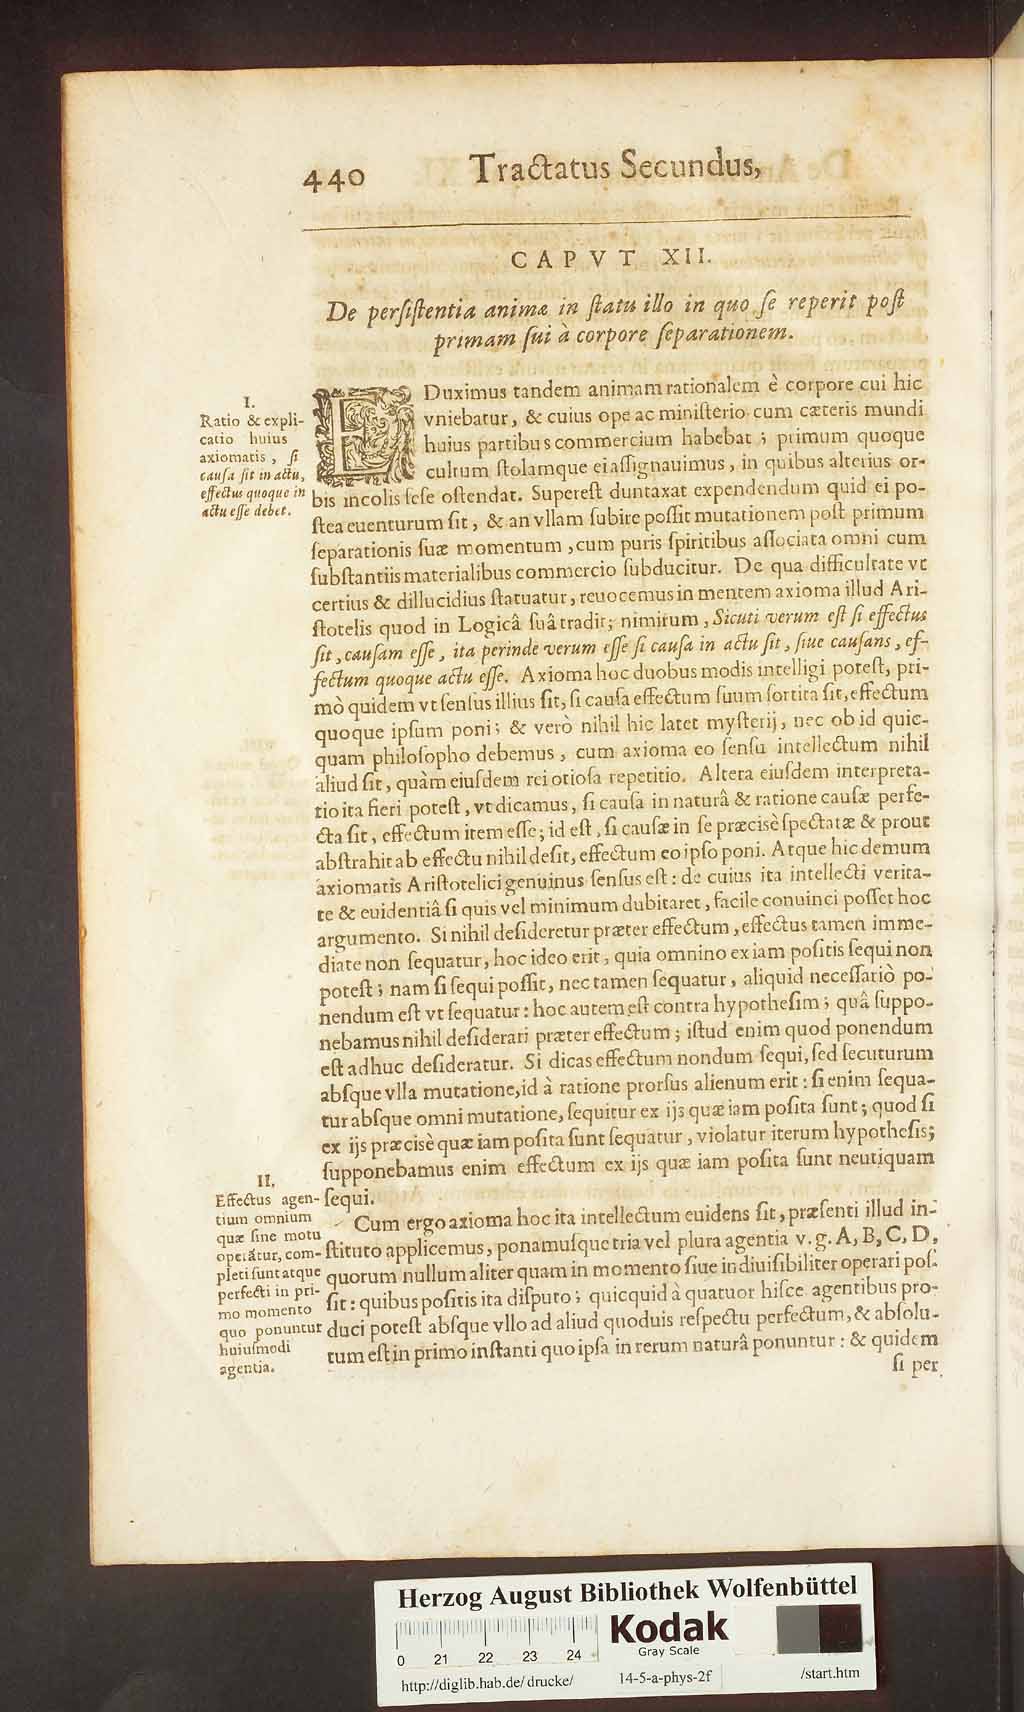 440
Tractatus Secundus,
CAPVT XII.
De perſiſtentia animæ in ſtatu illo in quo ſe reperit poſt
primam ſui à corpore ſeparationem.
I.
Ratio & expli-
catio huius
axiomatis, ſi
cauſa ſit in actu,
effectus quoque in
actu eſſe debet.
EDuximus tandem animam rationalem è corpore cui hic
vniebatur, & cuius ope ac miniſterio cum cæteris mundi
huius partibus commercium habebat; primum quoque
cultum ſtolamque ei aſſignauimus, in quibus alterius or-
bis incolis ſeſe oſtendat. Supereſt duntaxat expendendum quid ei po-
ſtea euenturum ſit, & an vllam ſubire poſſit mutationem poſt primum
ſeparationis ſuæ momentum, cum puris ſpiritibus aſſociata omni cum
ſubſtantiis materialibus commercio ſubducitur. De qua difficultate vt
certius & dillucidius ſtatuatur, reuocemus in mentem axioma illud Ari-
ſtotelis quod in Logicâ ſuâ tradit; nimirum, Sicuti verum eſt ſi effectus
ſit, cauſam eſſe, ita perinde verum eſſe ſi cauſa in actu ſit, ſiue cauſans, ef-
fectum quoque actu eſſe. Axioma hoc duobus modis intelligi poteſt, pri-
mò quidem vt ſenſus illius ſit, ſi cauſa effectum ſuum ſortita ſit, effectum
quoque ipſum poni; & verò nihil hic latet myſterij, nec ob id quic-
quam philoſopho debemus, cum axioma eo ſenſu intellectum nihil
aliud ſit, quàm eiuſdem rei otioſa repetitio. Altera eiuſdem interpreta-
tio ita fieri poteſt, vt dicamus, ſi cauſa in naturâ & ratione cauſæ perfe-
cta ſit, effectum item eſſe; id eſt, ſi cauſæ in ſe præcisè ſpectatæ & prout
abſtrahit ab effectu nihil deſit, effectum eo ipſo poni. Atque hic demum
axiomatis Ariſtotelici genuinus ſenſus eſt: de cuius ita intellecti verita-
te & euidentiâ ſi quis vel minimum dubitaret, facile conuinci poſſet hoc
argumento. Si nihil deſideretur præter effectum, effectus tamen imme-
diate non ſequatur, hoc ideo erit, quia omnino ex iam poſitis ſequi non
poteſt; nam ſi ſequi poſſit, nec tamen ſequatur, aliquid neceſſariò po-
nendum eſt vt ſequatur: hoc autem eſt contra hypotheſim; quâ ſuppo-
nebamus nihil deſiderari præter effectum; iſtud enim quod ponendum
eſt adhuc deſideratur. Si dicas effectum nondum ſequi, ſed ſecuturum
abſque vlla mutatione, id à ratione prorſus alienum erit: ſi enim ſequa-
tur abſque omni mutatione, ſequitur ex ijs quæ iam poſita ſunt; quod ſi
ex ijs præcisè quæ iam poſita ſunt ſequatur, violatur iterum hypotheſis;
ſupponebamus enim effectum ex ijs quæ iam poſita ſunt neutiquam
ſequi.
II.
Effectus agen-
tium omnium
quæ ſine motu
operātur, com-
pleti ſunt atque
perfecti in pri-
mo momento
quo ponuntur
huiuſmodi
agentia.
Cum ergo axioma hoc ita intellectum euidens ſit, præſenti illud in-
ſtituto applicemus, ponamuſque tria vel plura agentia v. g. A, B, C, D,
quorum nullum aliter quam in momento ſiue indiuiſibiliter operari poſ-
ſit: quibus poſitis ita diſputo; quicquid à quatuor hiſce agentibus pro-
duci poteſt abſque vllo ad aliud quoduis reſpectu perfectum, & abſolu-
tum eſt in primo inſtanti quo ipſa in rerum naturâ ponuntur: & quidem
ſi per
Herzog August Bibliothek Wolfenbüttel
Kodak
Gray Scale
0 21 22 23 24
http://diglib.hab.de/drucke/ 14-5-a-phys-2f /start.htm